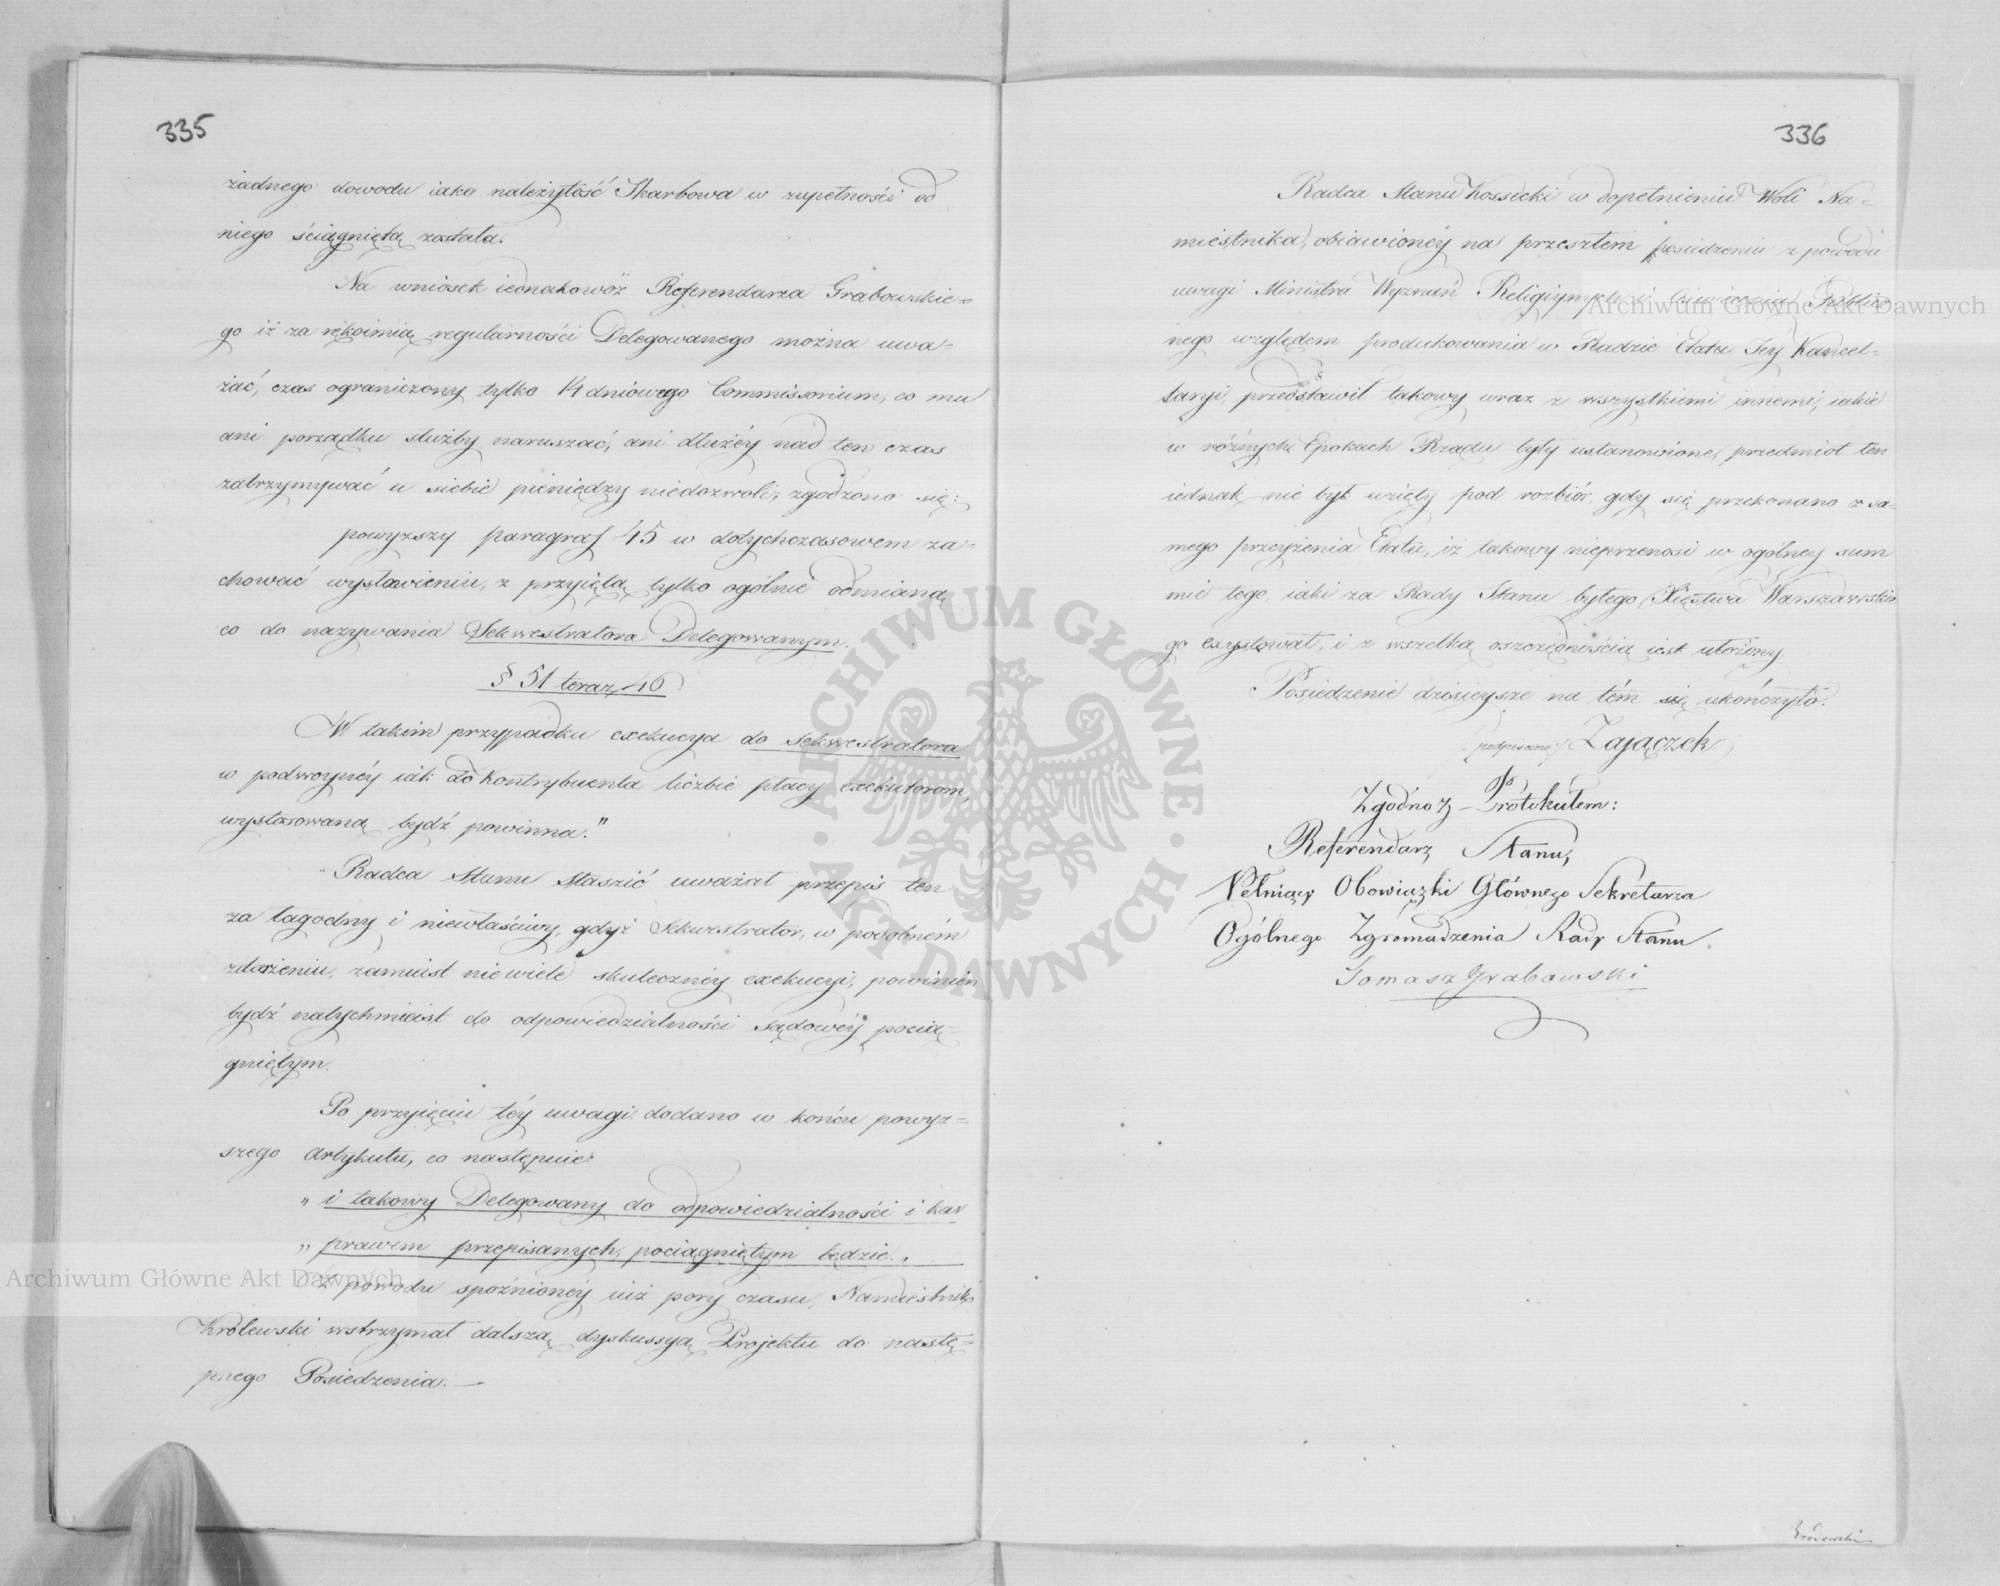 335
żadnego dowodu iako należytość Skarbowa w zupełności od
niego ściągniętą została.
Na wniosek iednakowóż Referendarza Grabowskie=
go iż za rękoimią regularności Delegowanego można uwa=
żać, czas ograniczony tylko 14 dniowego Commissorium, co mu
ani porządku służby naruszać, ani dłużéy nad ten czas
zatrzymywać u siebie pieniędzy niedozwoli, zgodzono się:
powyższy paragraf 45 w dotychczasowem za=
chować wystawieniu, z przyiętą tylko ogólnie odmianą
co do nazywania Sekwestratora Delegowanym.
§ 51 teraz 46
W takim przypadku exekucya do Sekwestratora
w podwóynéy iak do Kontrybuenta liczbie płacy exekutorom,
wystosowaną bydź powinna."
Radca Stanu Staszic uważał przepis ten
za łagodny i niewłaściwy, gdyż Sekwestrator, w podobném
zdarzeniu, zamiast niewiele skutecznéy exekucyi, powinien
bydź natychmiast do odpowiedzialności sądowéy pocią=
gniętym.
Po przyięciu téy uwagi dodano w końcu powyż=
szego Artykułu, co następuie:
" i takowy Delegowany do odpowiedzialności i kar
" prawem przepisanych, pociągniętym będzie. "
Z powodu spóźnionéy iuż pory czasu, Namiestnik
Królewski wstrzymał dalszą dyskussyą Projektu do nastę=
pnego Posiedzenia. —
336
Radca Stanu Kossecki w dopełnieniu Woli Na=
miestnika, obiawionéy na przeszłem posiedzeniu z powodu
uwagi Ministra Wyznań Religiynych i Oświecenia Publicz
nego względem produkowania w Radzie Etatu Jéy Kancel=
laryi, przedstawił takowy wraz z wszystkiemi innemi, iakie
w różnych Epokach Rządu były ustanowione, przedmiot ten
iednak nie był wzięty pod rozbiór, gdy się przekonano z sa=
mego przeyżenia Etatu, iż takowy nieprzenosi w ogólney sum
mie tego, iaki za Rady Stanu byłego Xięstwa Warszawskie
go exystował, i z wszelką oszczędnością iest ułożony.
Posiedzenie dzisieysze na tém się ukończyło.
/podpisano:/ Zaiączek
Zgodno z Protokułem:
Referendarz Stanu,
Pełniący Obowiązki Głównego Sekretarza
Ogólnego Zgromadzenia Rady Stanu.
Tomasz Grabowski
Brodowski
ARCHIWUM GŁÓWNE AKT DAWNYCH
Archiwum Główne Akt Dawnych
Archiwum Główne Akt Dawnych